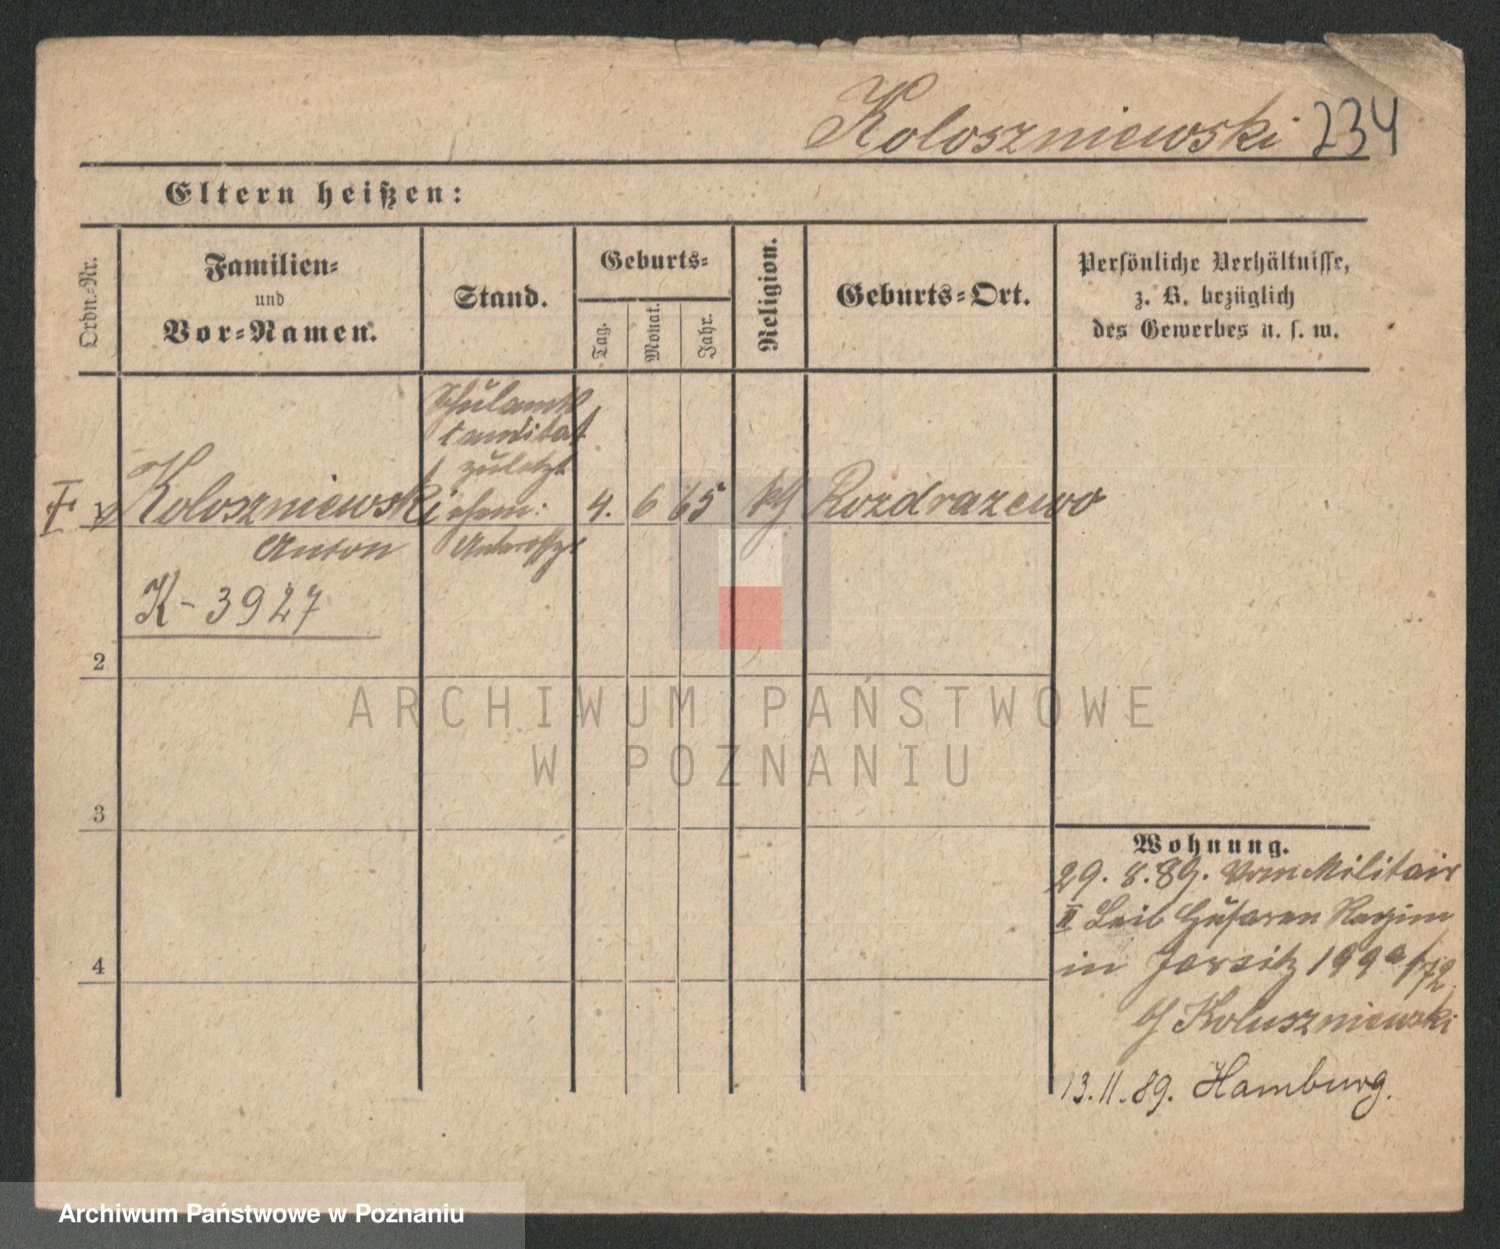 Koloszniewski 234
Eltern heißen:
Ordn.-Nr.
Familien-
und
Vor-Namen.
Stand.
Geburts-
Tag.
Monat.
Jahr.
Religion.
Geburts-Ort.
Persönliche Verhältnisse,
z. B. bezüglich
des Gewerbes u. s. w.
Schulamts
kandidat
zuletzt
Koloszniewski
Anton
4. 6 65
Rozdrazewo
K-3927
2
3
4
Wohnung.
29. 8. 89. vom Militair
II Leib Husaren Regim
in Jersitz
Koluszniewski
13.11.89. Hamburg.
ARCHIWUM PAŃSTWOWE
W POZNANIU
Archiwum Państwowe w Poznaniu